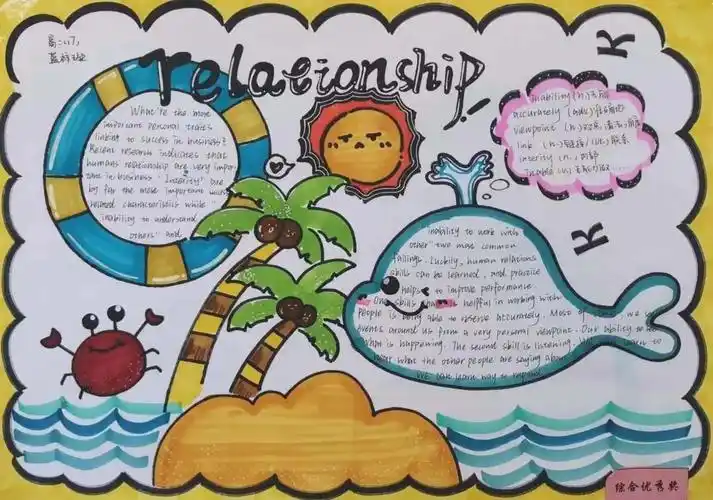 relationship
What're the most
important personal traits
linking to success in business?
Recent research indicates that
humans relationship are very impor-
tant in business. "Interity" are
by far the most important work
related characteristics while "
inability to understand
others" and
inability (n.) 无能
accurately (adv.) 准确地
viewpoint (n.)
link (n.) 链接 (v.) 联系
interity (n.)
inability to work with
other" two most common
failings. Luckily, human relations
skills can be learned, and practice
helps to improve performance.
One skills helpful in working with
people is being able to observe accurately. Most of
events around us from a very personal viewpoint. Our ability to
what is happening. The second skill is listening. learn to
hear what the other people are saying about
We can learn way to respond
综合优秀奖
K
K